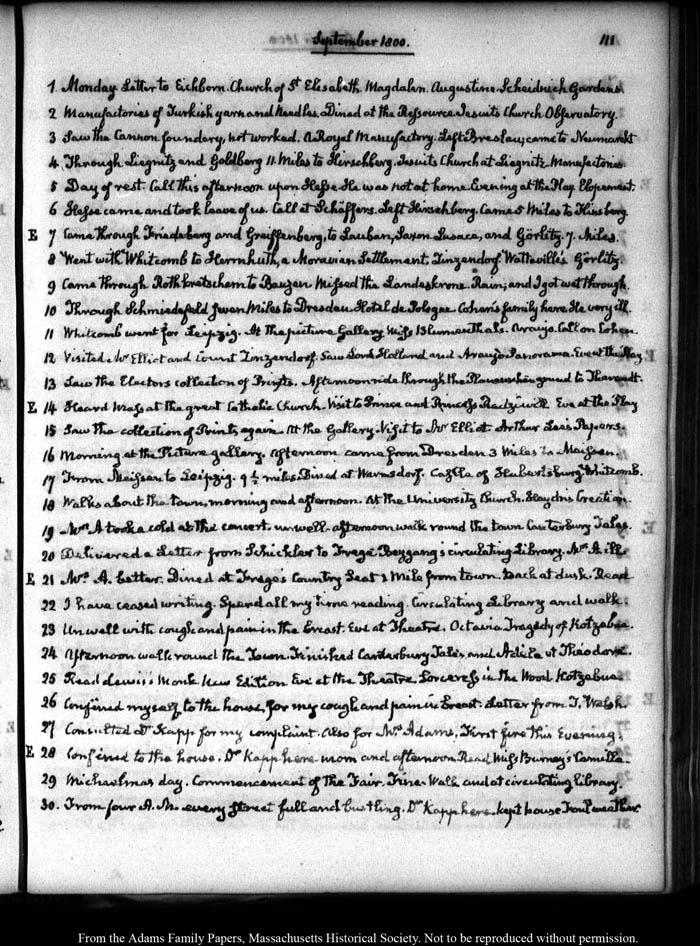 September 1800.
111
1 Monday Letter to Eichborn. Church of St Elisabeth. Magdalen. Augustine. Scheidnich Gardens.
2 Manufactories of Turkish yarn and Needles. Dined at the Ressource Jesuits Church Observatory.
3 Saw the Cannon foundery, not worked. A Royal Manufactory. Left Breslau, came to Neumarkt
4 Through Liegnitz and Goldberg 11 Miles to Hirschberg. Jesuits Church at Liegnitz. Manufactories.
5 Day of rest. Call this afternoon upon Hesse He was not at home. Evening at the Play. Elopement.
6 Hesse came and took leave of us. Call at Schäffers. Left Hirschberg. Came 5 Miles to Flinsberg.
E 7 Came through Friedeberg and Greiffenberg, to Lauban, Saxon Lusace, and Görlitz. 7. Miles.
8 Went with Whitcomb to Herrnhuth, a Moravian Settlement. Zinzendorf. Watteville's Görlitz.
9 Came through Rothkretschem to Bauzen Missed the Landeskrone. Rain; and I got wet through.
10 Through Schmiedefeld seven Miles to Dresden Hotel de Pologne. Cohen's family here. He very ill.
11 Whitcomb went for Leipzig. At the picture Gallery Miss Blumenthals. Araujo. Call on Cohen.
12 Visited Mr Elliot and Count Zinzendorf. Saw Lord Holland and Araujo. Panorama. Eve at the Play
13 Saw the Electors collection of Prints. Afternoon ride through the Plauenschen ground to Tharandt.
E 14 Heard Mass at the great Catholic Church. Visit to Prince and Princess Radziwill Eve at the Play
15 Saw the collection of Prints again. At the Gallery. Visit to Mr Elliot. Arthur Lee's Papers.
16 Morning at the Picture gallery. Afternoon came from Dresden 3 Miles to Meissen.
17 From Meissen to Leipzig. 9½ miles Dined at Wermsdorf. Castle of Hubertsburg Whitcomb.
18 Walks about the town, morning and afternoon. At the University Church. Haydn's Creation.
19 Mrs A took a cold at the concert. unwell. afternoon walk round the town Canterbury Tales.
20 Delivered a Letter from Schickler to Frege Beygang's circulating Library. Mrs A. ill.
E 21 Mrs A. better. Dined at Frege's Country Seat 1 Mile from town. Back at dusk. Read
22 I have ceased writing. Spend all my time reading. Circulating Library and walk.
23 Unwell with cough and pain in the Breast. Eve at Theatre. Octavia Tragedy of Kotzebue.
24 Afternoon walk round the Town. Finished Canterbury Tales and Adele et Theodore.
25 Read Lewis's Monk New Edition Eve at the Theatre. Sorceress in the Wood Kotzebue
26 Confined myself to the house, for my cough and pain in Breast. Letter from T. Welsh.
27 Consulted Dr Kapp for my complaint. Also for Mrs Adams. First fire this Evening.
E 28 Confined to the house. Dr Kapp here morn and afternoon. Read Miss Burney's Camilla.
29 Michaelmas day. Commencement of the Fair. Fine Walk and at circulating library.
30. From four A.M. every street full and bustling. Dr Kapp here. kept house Foul weather.
From the Adams Family Papers, Massachusetts Historical Society. Not to be reproduced without permission.